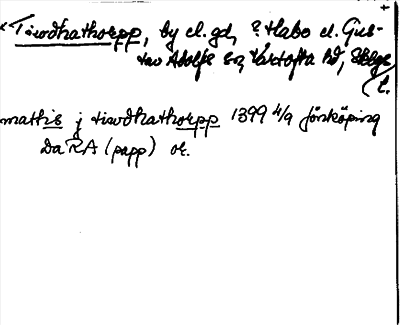 Tiwdhathorpp, by el. gd, ? Habo el. Gus-
tav Adolfs sn, Vartofta hd,
mathis j tiwdhathorpp 1399 4/9 Jönköping
Da RA (papp) or.